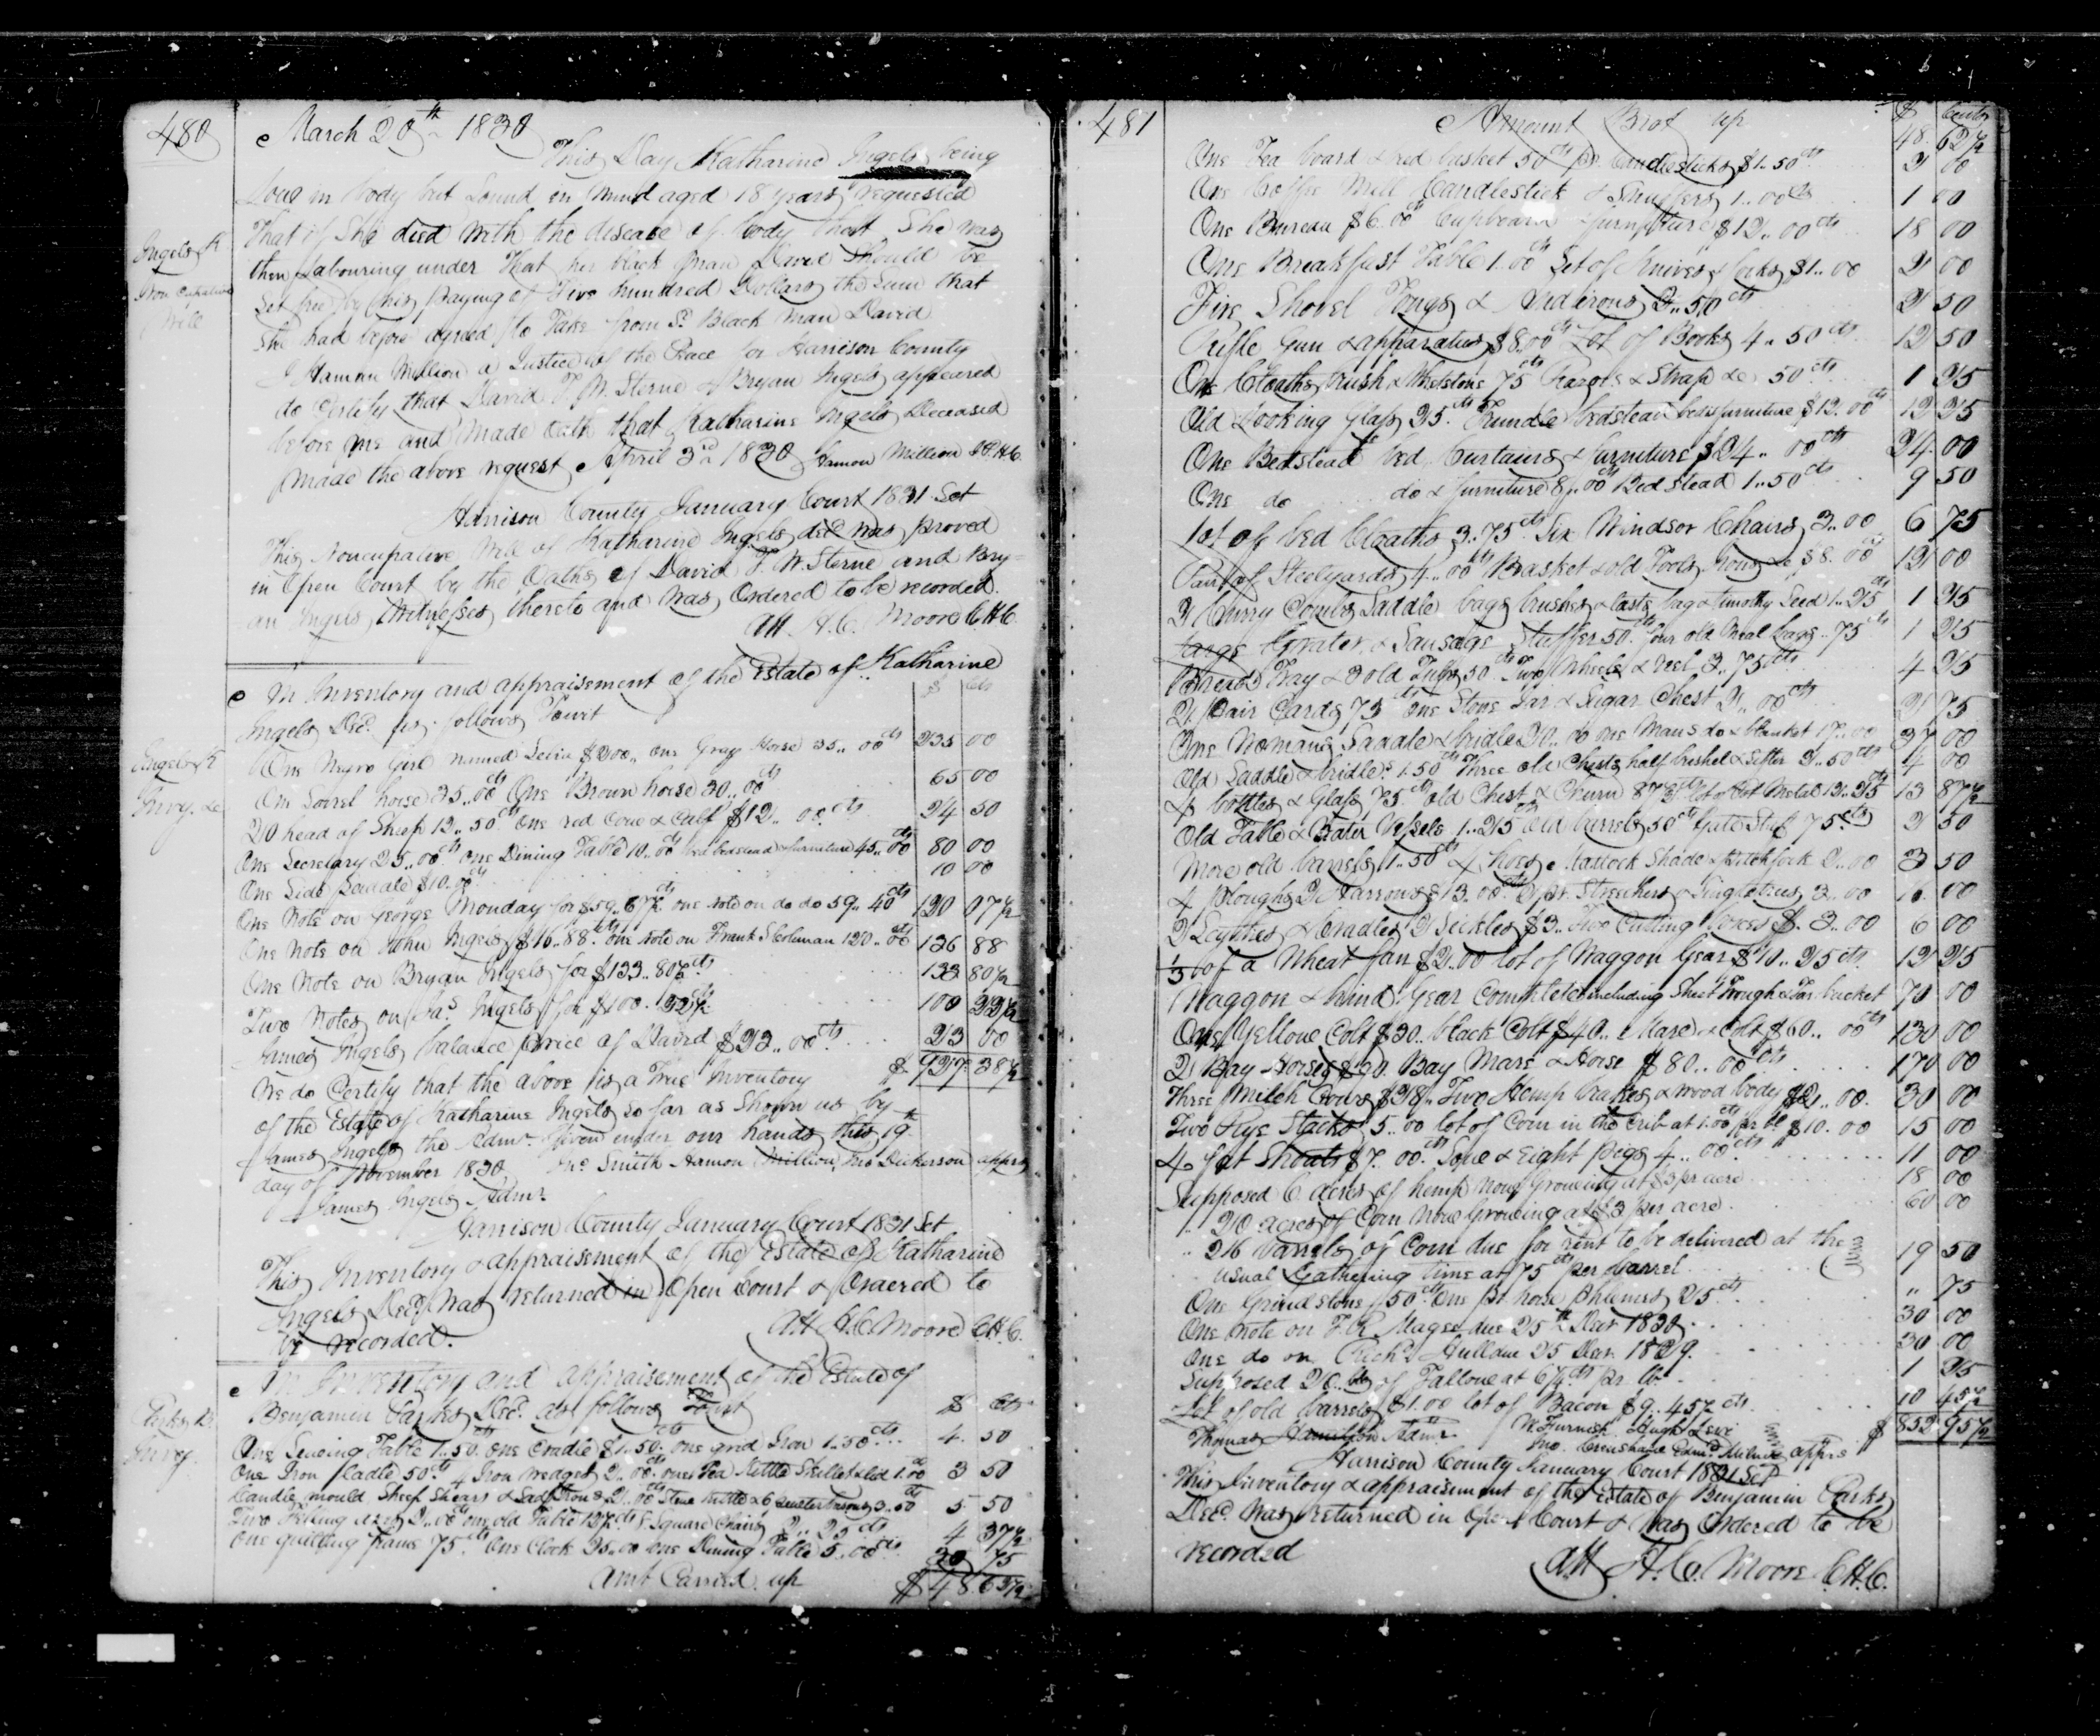 480
March 20th 1830
This Day Katharine Ingels being
Low in body but Sound in Mind aged 18 years requested
That if She died with the disease of body that She was
then Labouring under That her black man David Should be
Set free by his paying of Five hundred Dollars the Sum that
She had before agreed to Take from Sd Black Man David
I Hamon Million a Justice of the Peace for Harrison County
do Certify that David F. W. Sterne & Bryan Ingels appeared
before me and Made Oath that Katharine Ingels Deceased
Made the above request April 3rd 1830 Hamon Million JPHC
Ingels K
Non Cupative
Will
Harrison County January Court 1831 Sct
This Noncupative Will of Katharine Ingels decd was proved
in Open Court by the Oaths of David F. W. Sterne and Bry=
an Ingels Witnesses thereto and was Ordered to be recorded.
Att. H. C. Moore C.H.C.
An Inventory and appraisement of the Estate of Katharine
Ingels Decd as follows Towit $ cts
Ingels K
Invy. &c
One Negro Girl named $200,, One Gray Horse 35,, 00cts 235 00
One Sorrel horse 35,, 00cts One Brown horse 30,, 00cts 65 00
20 head of Sheep 12,, 50cts one red Cow & Calf $12,, 00cts 24 50
One Secretary 25,, 00cts one Dining Table 10,, 00cts bed bedstead & furniture 45,, 00cts 80 00
One Side Saddle $10. 00cts 10 00
One Note on George Monday for $59,, 67½cts one note on do do 59,, 40cts 120 07½
One Note on John Ingels $16,, 88cts one note on Frank S Coleman 120,, 00cts 136 88
One Note on Bryan Ingels for $133,, 80½cts 133 80½
Two Notes on Jas Ingels for $100. 
James Ingels balance price of David $23,, 00cts 23 00
We do Certify that the above is a True Inventory $ 927 38½
of the Estate of Katharine Ingels so far as Shown us by
James Ingels the Admr. Given under our hands this 19th
day of November 1830 Jno Smith Hamon Million, Jno Dickerson apprs
James Ingels Admr
Harrison County January Court 1831 Sct
This Inventory & appraisement of the Estate of Katharine
Ingels Decd was returned in Open Court & Ordered to
be recorded.
Att H. C. Moore C.H.C.
An Inventory and appraisement of the Estate of
Benjamin Parks Decd as follows Towit $ cts
Invoy.
One Sewing Table 1,, 50cts one Cradle $1,, 50cts one grid Iron 1,, 50cts 4. 50
One Iron Ladle 50cts 4 Iron wedges 2,, 00cts one Tea Kettle Skillet & lid 1. 00 3 50
Candle mould Sheep Shears & Sad Irons 2,, 00cts Stew kettle & 6 3,, 50cts 5. 50
Two 2,, 00cts one old Table 12½cts 8 Square Chairs 2,, 25cts 4 37½
One quilting frame 75cts One Clock 25,, 00 one Dining Table 5,, 00cts 30 75
Amt Carried up $48. 62½
481
Amount Brot up $ Cents
48. 62½
One Tea board & red basket 50cts pr Candlesticks $1. 50cts 2 00
One Coffee Mill Candlestick & Snuffers 1.. 00cts 1 00
One Bureau $6. 00cts Cupboard furniture $12,, 00cts 18 00
One Breakfast Table 1. 00cts Set of Knives & forks $1.. 00 2 00
Fire Shovel Tongs & Andirons 2.. 50cts 2 50
Rifle Gun & apparatus $8. 00cts Lot of Books 4.. 50cts 12 50
One Cloaths brush & Whetstone 75cts Razors & Strap &c 50cts 1 25
Old Looking glass 25cts Trundle bedstead bed & furniture $12. 00cts 12 25
One Bedstead bed Curtains & furniture $24,, 00cts 24. 00
One do do & furniture 8,, 00cts Bed Stead 1.. 50cts 9 50
lot of bed Cloaths 3.. 75cts Six Windsor Chairs 3.. 00 6 75
Pair of Steelyards 4.. 00cts Basket & old Tools Irons &c $8. 00cts 12 00
2 Curry Combs Saddle bags brushes & lasts bag & timothy Seed 1.. 25cts 1 25
large Grater & Sausage Stuffer 50cts four old Meal bags.. 75cts 1 25
Bread Tray & 3 old Tubs 50cts Two Wheels & reel 3.. 75cts 4 25
2 Pair Cards 75cts One Stone Jar & Sugar Chest 2,, 00cts 2 75
One Womans Saddle & bridle 20.. 00 one Mans do & blanket 17.. 00 37 00
Old Saddle & bridle 1. 50cts Three old Chests half bushel & Sifter 2.. 50cts 4 00
4 bottles & Glass 75cts old Chest & Churn 87½cts lot of Pot Metal 12.. 25cts 13 87½
Old Table & Water Vessels 1.. 25 old barrels 50cts Gate Stuff 75cts 2 50
More old barrels 1.. 50cts 4 hoes Mattock Spade & pitchfork 2.. 00 3 50
4 Ploughs 2 Harrows $13. 00cts 2 pr Stretchers & Singletrees 3.. 00 16. 00
2 Scythes & Cradles 2 Sickles $3.. Two Cutting boxes $. 3.. 00 6 00
⅓ of a Wheat fan $2.. 00 lot of Waggon Gear $10.. 25cts 12 25
Waggon & hind Gear Complete including Sheet Trough & Tar bucket 70 00
One Yellow Colt $30.. black Colt $40.. Mare & Colt $60.. 00cts 130 00
2 Bay Horses $90. Bay Mare & Horse $80.. 00cts 170 00
Three Milch Cows $28,, Two Hemp brakes & wood body $2,, 00. 30 00
Two Rye Stacks 5.. 00 lot of Corn in the Crib at 1. 00cts pr bl $10. 00 15 00
4 fat Shoats $7. 00cts Sow & Eight pigs 4.. 00cts 11 00
Supposed 6 acres of hemp Now Growing at $3 pr acre 18 00
,, 20 acres of Corn Now Growing at $3 per acre 60 00
,, 26 barrels of Corn due for rent to be delivered at the
usual Gathering time at 75cts per barrel 19 50
One Grindstone 50cts One pr horse phleames 25cts ,, 75
One note on J. R. Magee due 25th Decr 1830 30 00
One do on Richd Hull due 25 Decr 1829. 30 00
Supposed 20 lb of Tallow at 6¼cts pr lb 1 25
Lot of old barrels $1.00 lot of Bacon $9.. 45½cts 10 45½
Thomas Hamilton Admr. W. Furnish Hugh Levi $ 852 95½
Jno. Crenshaw apprs
Harrison County January Court 1831 Sct
This Inventory & appraisement of the Estate of Benjamin Parks
Decd was returned in Open Court & was Ordered to be
recorded
Att H. C. Moore C.H.C.